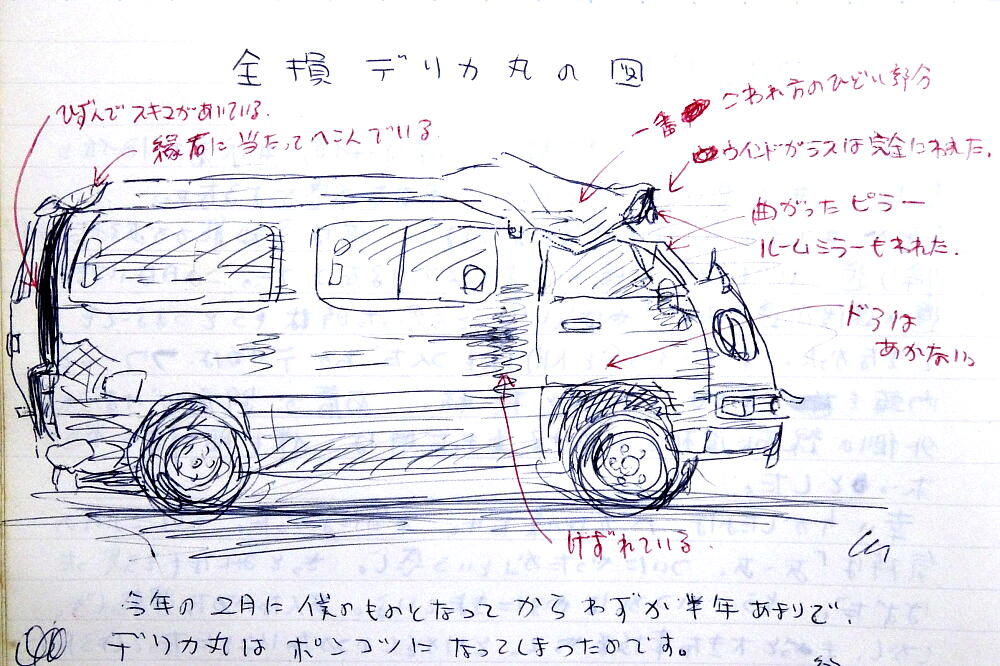 全損 デリカ丸の図
ひずんでスキマがあいている。
縁石に当たってへこんでいる。
一番 こわれ方のひどい部分
ウインドガラスは完全にわれた。
曲がったピラー
ルームミラーもわれた。
ドアは
あかない。
けずれている。
今年の2月に僕のものとなってからわずか半年あまりで、
デリカ丸はポンコツになってしまったのです。